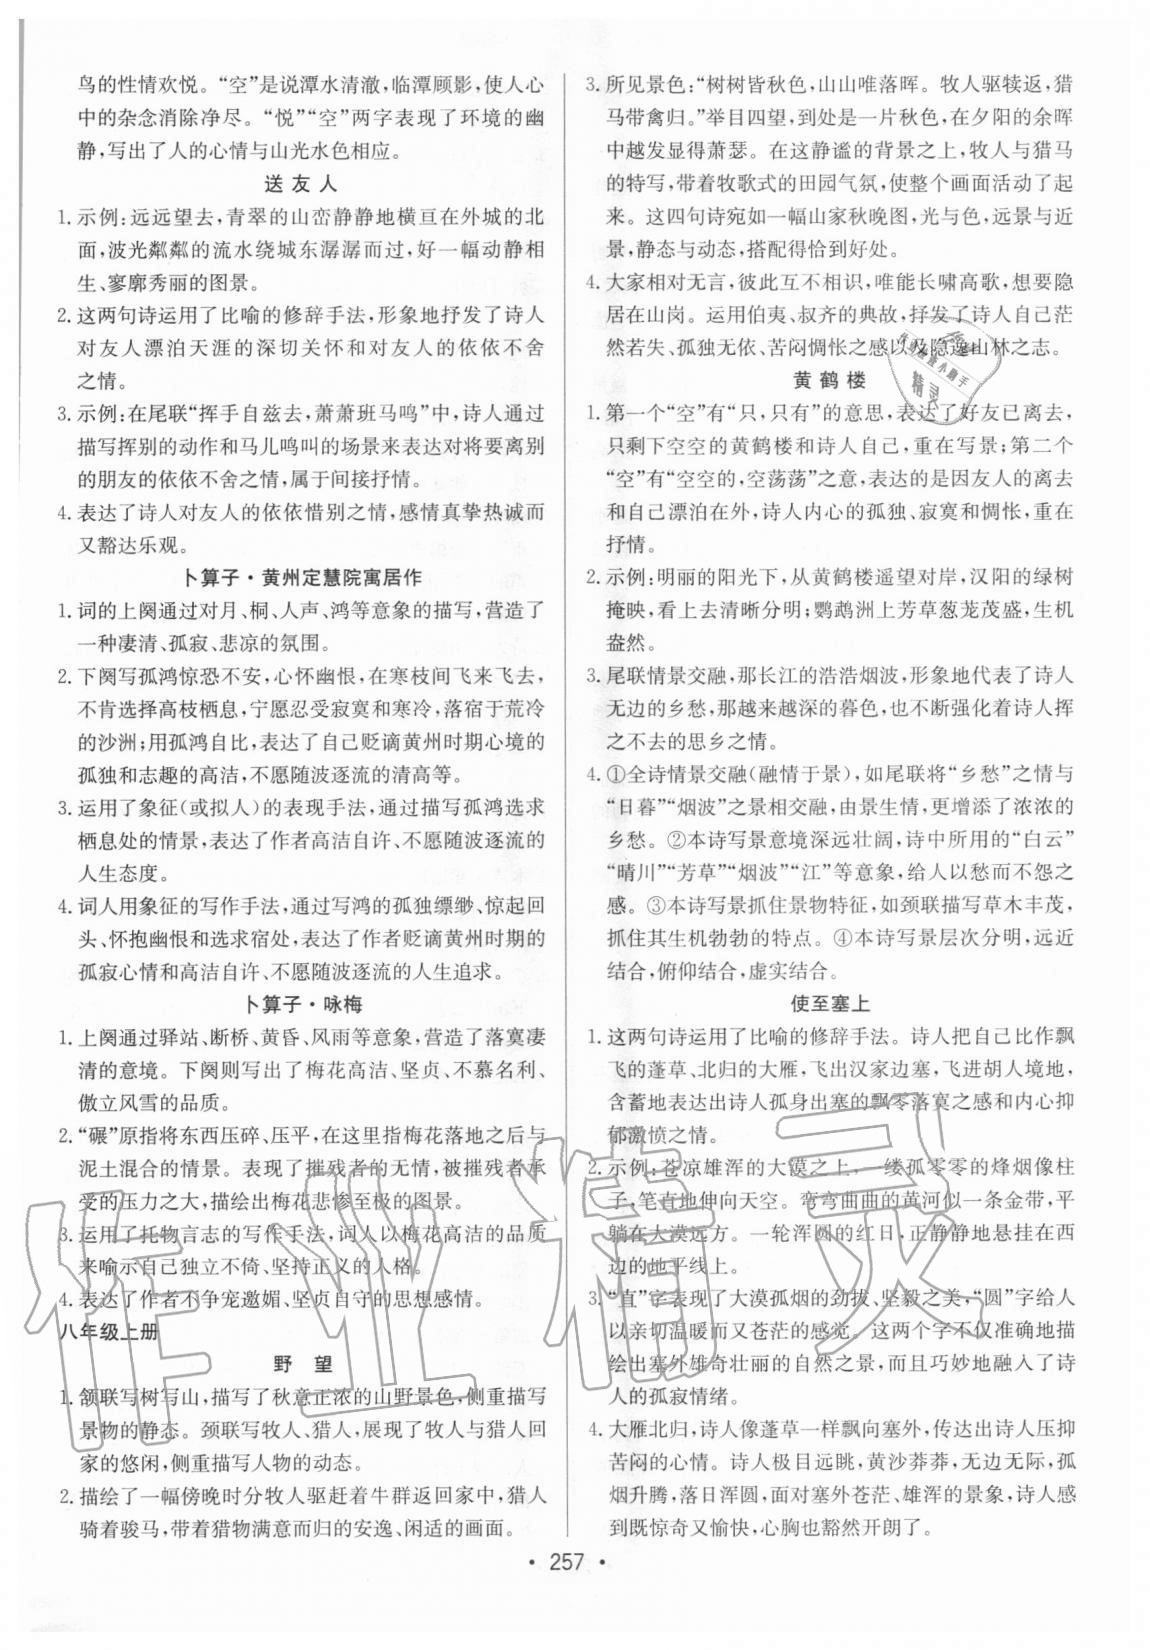 鸟的性情欢悦。“空”是说潭水清澈,临潭顾影,使人心
中的杂念消除净尽。“悦”“空”两字表现了环境的幽
静,写出了人的心情与山光水色相应。
送友人
1. 示例:远远望去,青翠的山峦静静地横亘在外城的北
面,波光粼粼的流水绕城东潺潺而过,好一幅动静相
生、寥廓秀丽的图景。
2. 这两句诗运用了比喻的修辞手法,形象地抒发了诗人
对友人漂泊天涯的深切关怀和对友人的依依不舍
之情。
3. 示例:在尾联“挥手自兹去,萧萧班马鸣”中,诗人通过
描写挥别的动作和马儿鸣叫的场景来表达对将要离别
的朋友的依依不舍之情,属于间接抒情。
4. 表达了诗人对友人的依依惜别之情,感情真挚热诚而
又豁达乐观。
卜算子·黄州定慧院寓居作
1. 词的上阕通过对月、桐、人声、鸿等意象的描写,营造了
一种凄清、孤寂、悲凉的氛围。
2. 下阕写孤鸿惊恐不安,心怀幽恨,在寒枝间飞来飞去,
不肯选择高枝栖息,宁愿忍受寂寞和寒冷,落宿于荒冷
的沙洲;用孤鸿自比,表达了自己贬谪黄州时期心境的
孤独和志趣的高洁,不愿随波逐流的清高等。
3. 运用了象征(或拟人)的表现手法,通过描写孤鸿选求
栖息处的情景,表达了作者高洁自许、不愿随波逐流的
人生态度。
4. 词人用象征的写作手法,通过写鸿的孤独缥缈、惊起回
头、怀抱幽恨和选求宿处,表达了作者贬谪黄州时期的
孤寂心情和高洁自许、不愿随波逐流的人生追求。
卜算子·咏梅
1. 上阕通过驿站、断桥、黄昏、风雨等意象,营造了落寞凄
清的意境。下阕则写出了梅花高洁、坚贞、不慕名利、
傲立风雪的品质。
2. “碾”原指将东西压碎、压平,在这里指梅花落地之后与
泥土混合的情景。表现了摧残者的无情,被摧残者承
受的压力之大,描绘出梅花悲惨至极的图景。
3. 运用了托物言志的写作手法,词人以梅花高洁的品质
来喻示自己独立不倚、坚持正义的人格。
4. 表达了作者不争宠邀媚、坚贞自守的思想感情。
八年级上册
野望
1. 颔联写树写山,描写了秋意正浓的山野景色,侧重描写
景物的静态。颈联写牧人、猎人,展现了牧人与猎人回
家的悠闲,侧重描写人物的动态。
2. 描绘了一幅傍晚时分牧人驱赶着牛群返回家中,猎人
骑着骏马,带着猎物满意而归的安逸、闲适的画面。
3. 所见景色:“树树皆秋色,山山唯落晖。牧人驱犊返,猎
马带禽归。”举目四望,到处是一片秋色,在夕阳的余晖
中越发显得萧瑟。在这静谧的背景之上,牧人与猎马
的特写,带着牧歌式的田园气氛,使整个画面活动了起
来。这四句诗宛如一幅山家秋晚图,光与色,远景与近
景,静态与动态,搭配得恰到好处。
4. 大家相对无言,彼此互不相识,唯能长啸高歌,想要隐
居在山岗。运用伯夷、叔齐的典故,抒发了诗人自己茫
然若失、孤独无依、苦闷惆怅之感以及隐逸山林之志。
黄鹤楼
1. 第一个“空”有“只,只有”的意思,表达了好友已离去,
只剩下空空的黄鹤楼和诗人自己,重在写景;第二个
“空”有“空空的,空荡荡”之意,表达的是因友人的离去
和自己漂泊在外,诗人内心的孤独、寂寞和惆怅,重在
抒情。
2. 示例:明丽的阳光下,从黄鹤楼遥望对岸,汉阳的绿树
掩映,看上去清晰分明;鹦鹉洲上芳草葱茏茂盛,生机
盎然。
3. 尾联情景交融,那长江的浩浩烟波,形象地代表了诗人
无边的乡愁,那越来越深的暮色,也不断强化着诗人挥
之不去的思乡之情。
4. ①全诗情景交融(融情于景),如尾联将“乡愁”之情与
“日暮”“烟波”之景相交融,由景生情,更增添了浓浓的
乡愁。②本诗写景意境深远壮阔,诗中所用的“白云”
“晴川”“芳草”“烟波”“江”等意象,给人以苍茫悠远之
感。③本诗写景抓住景物特征,如颈联描写草木丰茂,
抓住其生机勃勃的特点。④本诗写景层次分明,远近
结合,俯仰结合,虚实结合。
使至塞上
1. 这两句诗运用了比喻的修辞手法。诗人把自己比作飘
飞的蓬草、北归的大雁,飞出汉家边塞,飞进胡人境地,
含蓄地表达出诗人孤身出塞的飘零落寞之感和内心抑
郁激愤之情。
2. 示例:苍凉雄浑的大漠之上,一缕孤零零的烽烟像柱
子,笔直地伸向天空。弯弯曲曲的黄河似一条金带,平
躺在大漠远方。一轮浑圆的红日,正静静地悬挂在西
边的地平线上。
3. “直”字表现了大漠孤烟的劲拔、坚毅之美,“圆”字给人
以亲切温暖而又苍茫的感觉。这两个字不仅准确地描
绘出塞外雄奇壮丽的自然之景,而且巧妙地融入了诗
人的孤寂情绪。
4. 大雁北归,诗人像蓬草一样飘向塞外,传达出诗人压抑
苦闷的心情。诗人极目远眺,黄沙莽莽,无边无际,孤
烟升腾,落日浑圆,面对塞外苍茫、雄浑的景象,诗人感
到既惊奇又愉快,心胸也豁然开朗了。
·257·
作业精灵
精灵